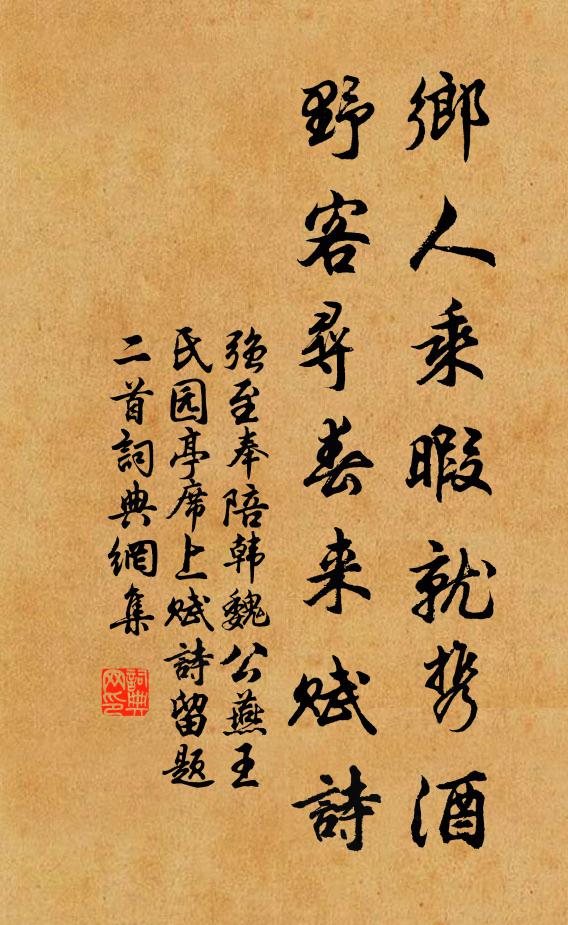 鄉人乘暇就携酒
野客尋春来赋詩
强至奉陪韩魏公燕王
氏园亭席上赋詩留题
二首詞典網集
詞典
网印